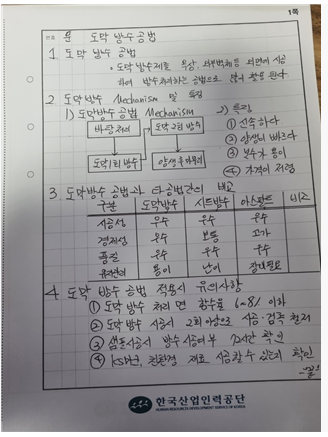 1쪽
문 도막 방수 공법
1. 도막 방수 공법
• 도막 방수재로 옥상, 외부벽체등 외면에 시공
하여 방수처리하는 공법으로 많이 활용 된다
2. 도막방수 Mechanism 및 특징
1) 도막방수공법 Mechanism 2) 특징
바탕처리 도막 2회 방수 ① 신속하다
② 양생이 빠르다
도막 1회 방수 양생후 마무리 ③ 보수가 용이
④ 가격이 저렴
3. 도막방수 공법과 타공법간의 비교
구분 도막방수 시트방수 아스팔트 비고
시공성 우수 우수 우수
경제성 우수 보통 고가
품질 우수 우수 우수
유지관리 용이 난이 장비필요
4. 도막 방수 공법 적용시 유의사항
① 도막 방수 처리 면 함수율 6~8% 이하
② 도막 방수 시공시 2회 이상으로 시공·검측 철저
③ 샘플시공시 방수 시공여부 72시간 확인
④ KS인지, 친환경 재료 시공할 수 있는지 확인
-끝-
한국산업인력공단
HUMAN RESOURCES DEVELOPMENT SERVICE OF KOREA